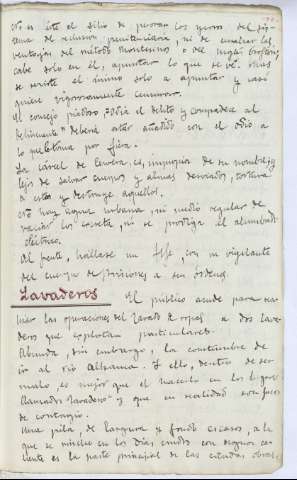 No es éste el sitio de pesar los yerros del sis-
tema de reclusión penitenciaria, ni de ensalzar las
ventajas del método Montesinos o del inglés Crofton;
cabe solo en él, apuntar lo que se vé. Mas
se resiste el ánimo solo a apuntar y casi
quiere vigorosamente censurar.
El consejo piadoso "Odia el delito y compadece al
delincuente" deberá estar añadido con el odio a
lo que
La cárcel de Cervera es, impropia de su nombre, y
lejos de salvar cuerpos y almas desviados, tortura
a estas y destruye aquellos.
No hay agua urbana, ni medio regular de
vaciar los ni se prodiga el alumbrado
eléctrico.
Al frente, hállase un Jefe, con un vigilante
del cuerpo de prisiones a sus órdenes.
Lavaderos El público acude para rea-
lizar las operaciones del lavado de ropas a dos lava-
deros que explotan particulares.
Abunda, sin embargo, la costumbre de
ir al río Alhama. Y ello, dentro de ser
malo es mejor que el hacerlo en los lugares
llamados "lavaderos" y que en realidad son focos
de contagio.
Una pila, de largura y fondo escasos, a la
que se mezcla en los días crudos con agua ca-
liente es la parte principal de las citadas obras.